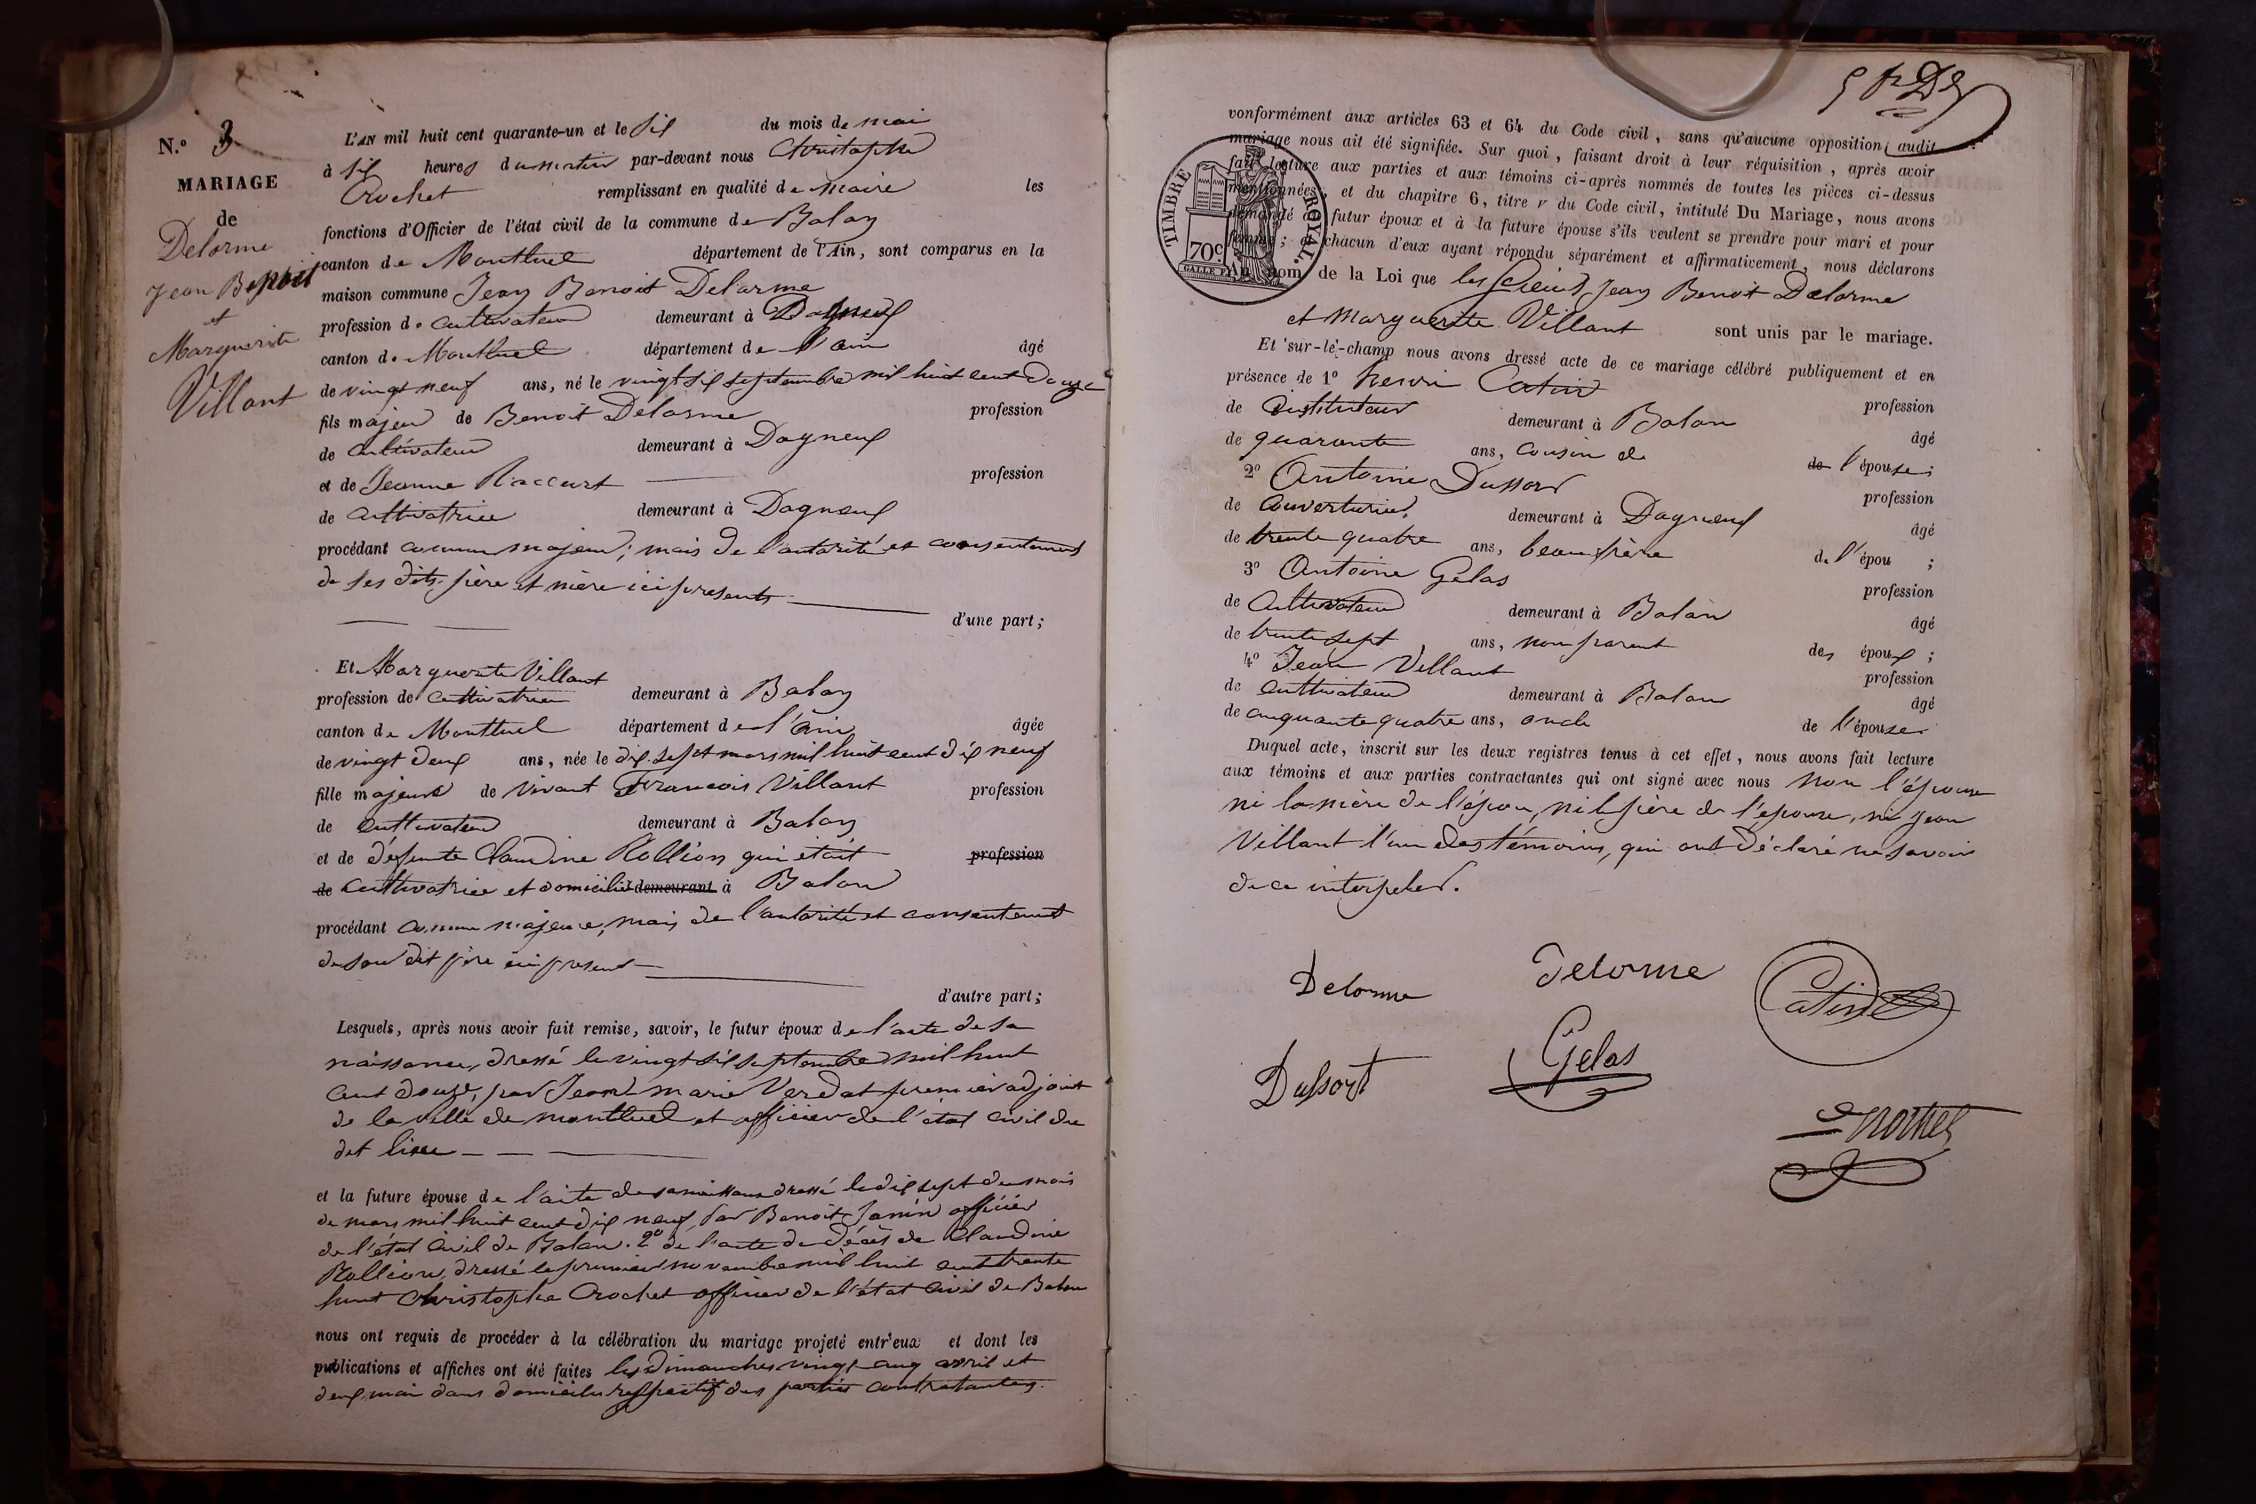 N.º 3
MARIAGE
de
Delorme
Jean Benoit
et
Marguerite
Villant
L'AN mil huit cent quarante-un et le six du mois de mai
à six heures du matin par-devant nous Christophe
Crochet remplissant en qualité de maire les
fonctions d'Officier de l'état civil de la commune de Balan
canton de Montluel département de l'Ain, sont comparus en la
maison commune Jean Benoit Delorme
profession de cultivateur demeurant à Dagneux
canton de Montluel département de l'ain âgé
de vingt neuf ans, né le vingt six septembre mil huit cent douze
fils majeur de Benoit Delorme profession
de cultivateur demeurant à Dagneux
et de Jeanne Raccurt profession
de cultivatrice demeurant à Dagneux
procédant comme majeur; mais de l'autorité et consentement
de ses dits père et mère ici présents
d'une part;
Et Marguerite Villant
profession de cultivatrice demeurant à Balan
canton de Montluel département de l'Ain âgée
de vingt deux ans, née le dix sept mars mil huit cent dix neuf
fille majeure de vivant François Villant profession
de cultivateur demeurant à Balan
et de défunte Claudine Rollion qui était profession
de cultivatrice et domicilié demeurant à Balan
procédant comme majeure, mais de l'autorité et consentement
de son dit père ici présent
d'autre part;
Lesquels, après nous avoir fait remise, savoir, le futur époux de l'acte de sa
naissance, dressé le vingt six septembre mil huit
cent douze, par Jean marie Verdat premier adjoint
de la ville de montluel et officier de l'état civil du
dit lieu
et la future épouse de l'acte de sa naissance dressé le dix sept du mois
de mars mil huit cent dix neuf, par Benoit Janin officier
de l'état civil de Balan. 2º de l'acte de décès de Claudine
Rollion, dressé le premier novembre mil huit cent trente
huit Christophe Crochet officier de l'état civil de Balan
nous ont requis de procéder à la célébration du mariage projeté entr'eux et dont les
publications et affiches ont été faites les dimanches vingt cinq avril et
deux mai dans domiciles respectif des parties contratantes.
vonformément aux articles 63 et 64 du Code civil, sans qu'aucune opposition audit
mariage nous ait été signifiée. Sur quoi, faisant droit à leur réquisition, après avoir
fait lecture aux parties et aux témoins ci-après nommés de toutes les pièces ci-dessus
mentionnées, et du chapitre 6, titre v du Code civil, intitulé Du Mariage, nous avons
demandé au futur époux et à la future épouse s'ils veulent se prendre pour mari et pour
femme; et chacun d'eux ayant répondu séparément et affirmativement, nous déclarons
Au nom de la Loi que les Jean Benoit Delorme
et Marguerite Villant sont unis par le mariage.
TIMBRE ROYAL.
70c.
Et sur-le-champ nous avons dressé acte de ce mariage célébré publiquement et en
présence de 1º henri Catin profession
de instituteur demeurant à Balan âgé
de quarante ans, cousin de de l'épouse;
2º Antoine Dussort profession
de couverturier demeurant à Dagneux âgé
de trente quatre ans, beau frère de l'épou ;
3º Antoine Gelas profession
de cultivateur demeurant à Balan âgé
de trente sept ans, non parent des époux ;
4º Jean Villant profession
de cultivateur demeurant à Balan âgé
de cinquante quatre ans, oncle de l'épouse.
Duquel acte, inscrit sur les deux registres tenus à cet effet, nous avons fait lecture
aux témoins et aux parties contractantes qui ont signé avec nous non l'épouse
ni la mère de l'époux, ni le père de l'épouse, ni jean
Villant l'un des témoins, qui ont déclaré ne savoir
de ce interpeler.
Delorme
Delorme
Catin
Dussort
Gelas
Crochet